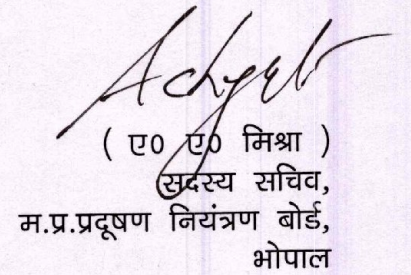 ( ए० ए० मिश्रा )
सदस्य सचिव,
म.प्र.प्रदूषण नियंत्रण बोर्ड,
भोपाल